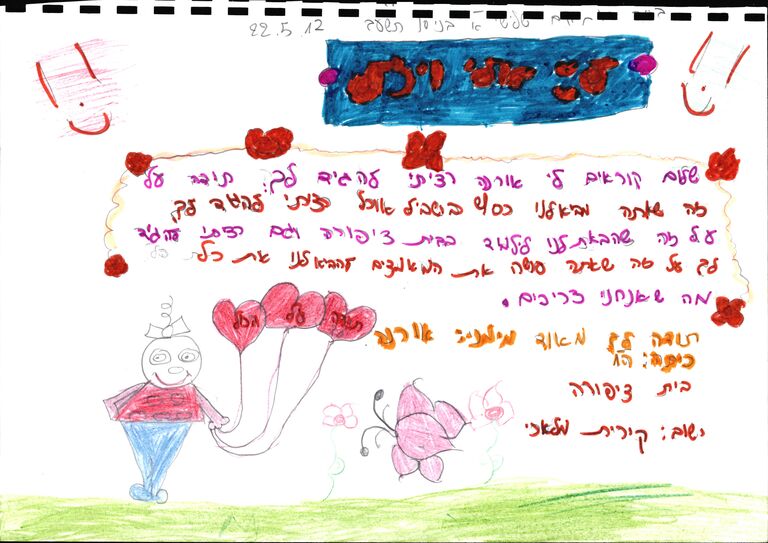 ב"ה היום שלישי א בניסן תשע"ב 22.5.12
שלום קוראים לי אורנה רציתי להגיד לך: תודה על
זה שאתה מביא לנו כסף בשביל אוכל רציתי להגיד לך
על זה שהבאת לנו ללמוד בבית ציפורה וגם רציתי להגיד
לך על זה שאתה עושה את המאמצים להביא לנו את כל
מה שאנחנו צריכים.
תודה על הכל
תודה לך מאוד מימני: אורנה
כיתה: ח1
בית ציפורה
ישוב: קירית מלאכי